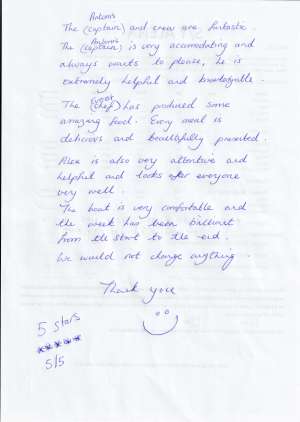 Antonis
The (captain) and crew are fantastic.
Antonis
The (captain) is very accomodating and
always wants to please, he is
extremely helpful and knowledgable.
The (chef) has produced some
amazing food. Every meal is
delicious and beautifully presented.
Alex is also very attentive and
helpful and looks after everyone
very well.
The boat is very comfortable and
the week has been brilliant
from the start to the end.
We would not change anything.
Thank you
5 stars
*****
5/5